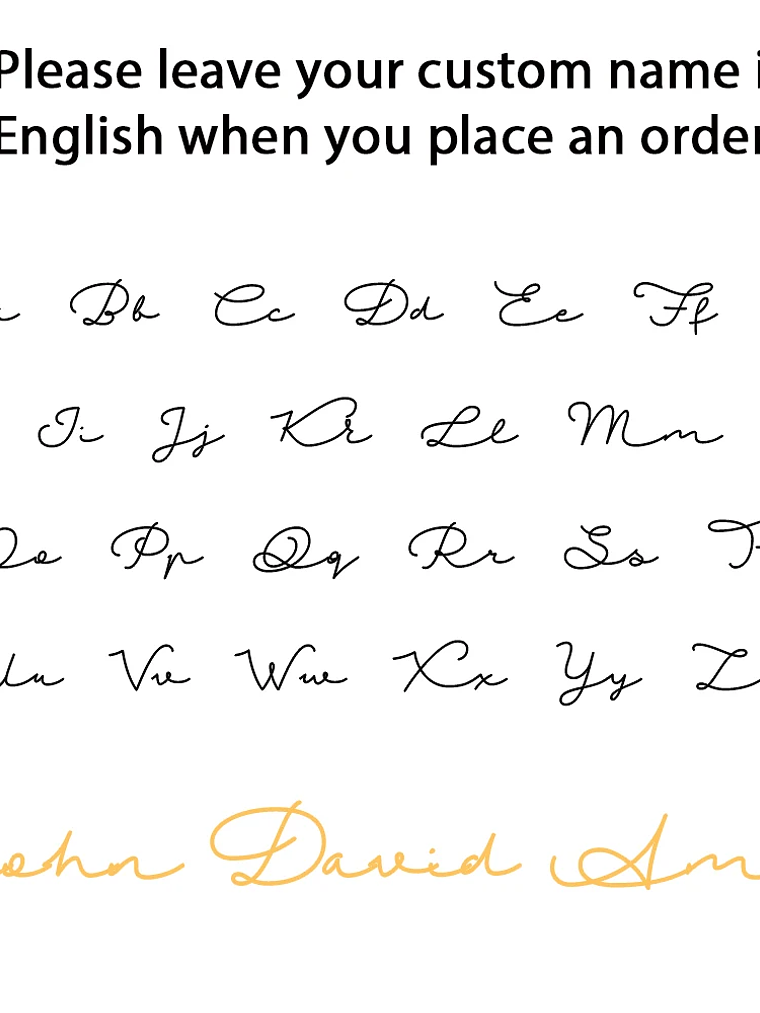 Please leave your custom name i
English when you place an order
Bb Cc Dd Ee Ff
Ii Jj Kk Ll Mm
Oo Pp Qq Rr Ss T
Uu Vv Ww Xx Yy Z
ohn David Am